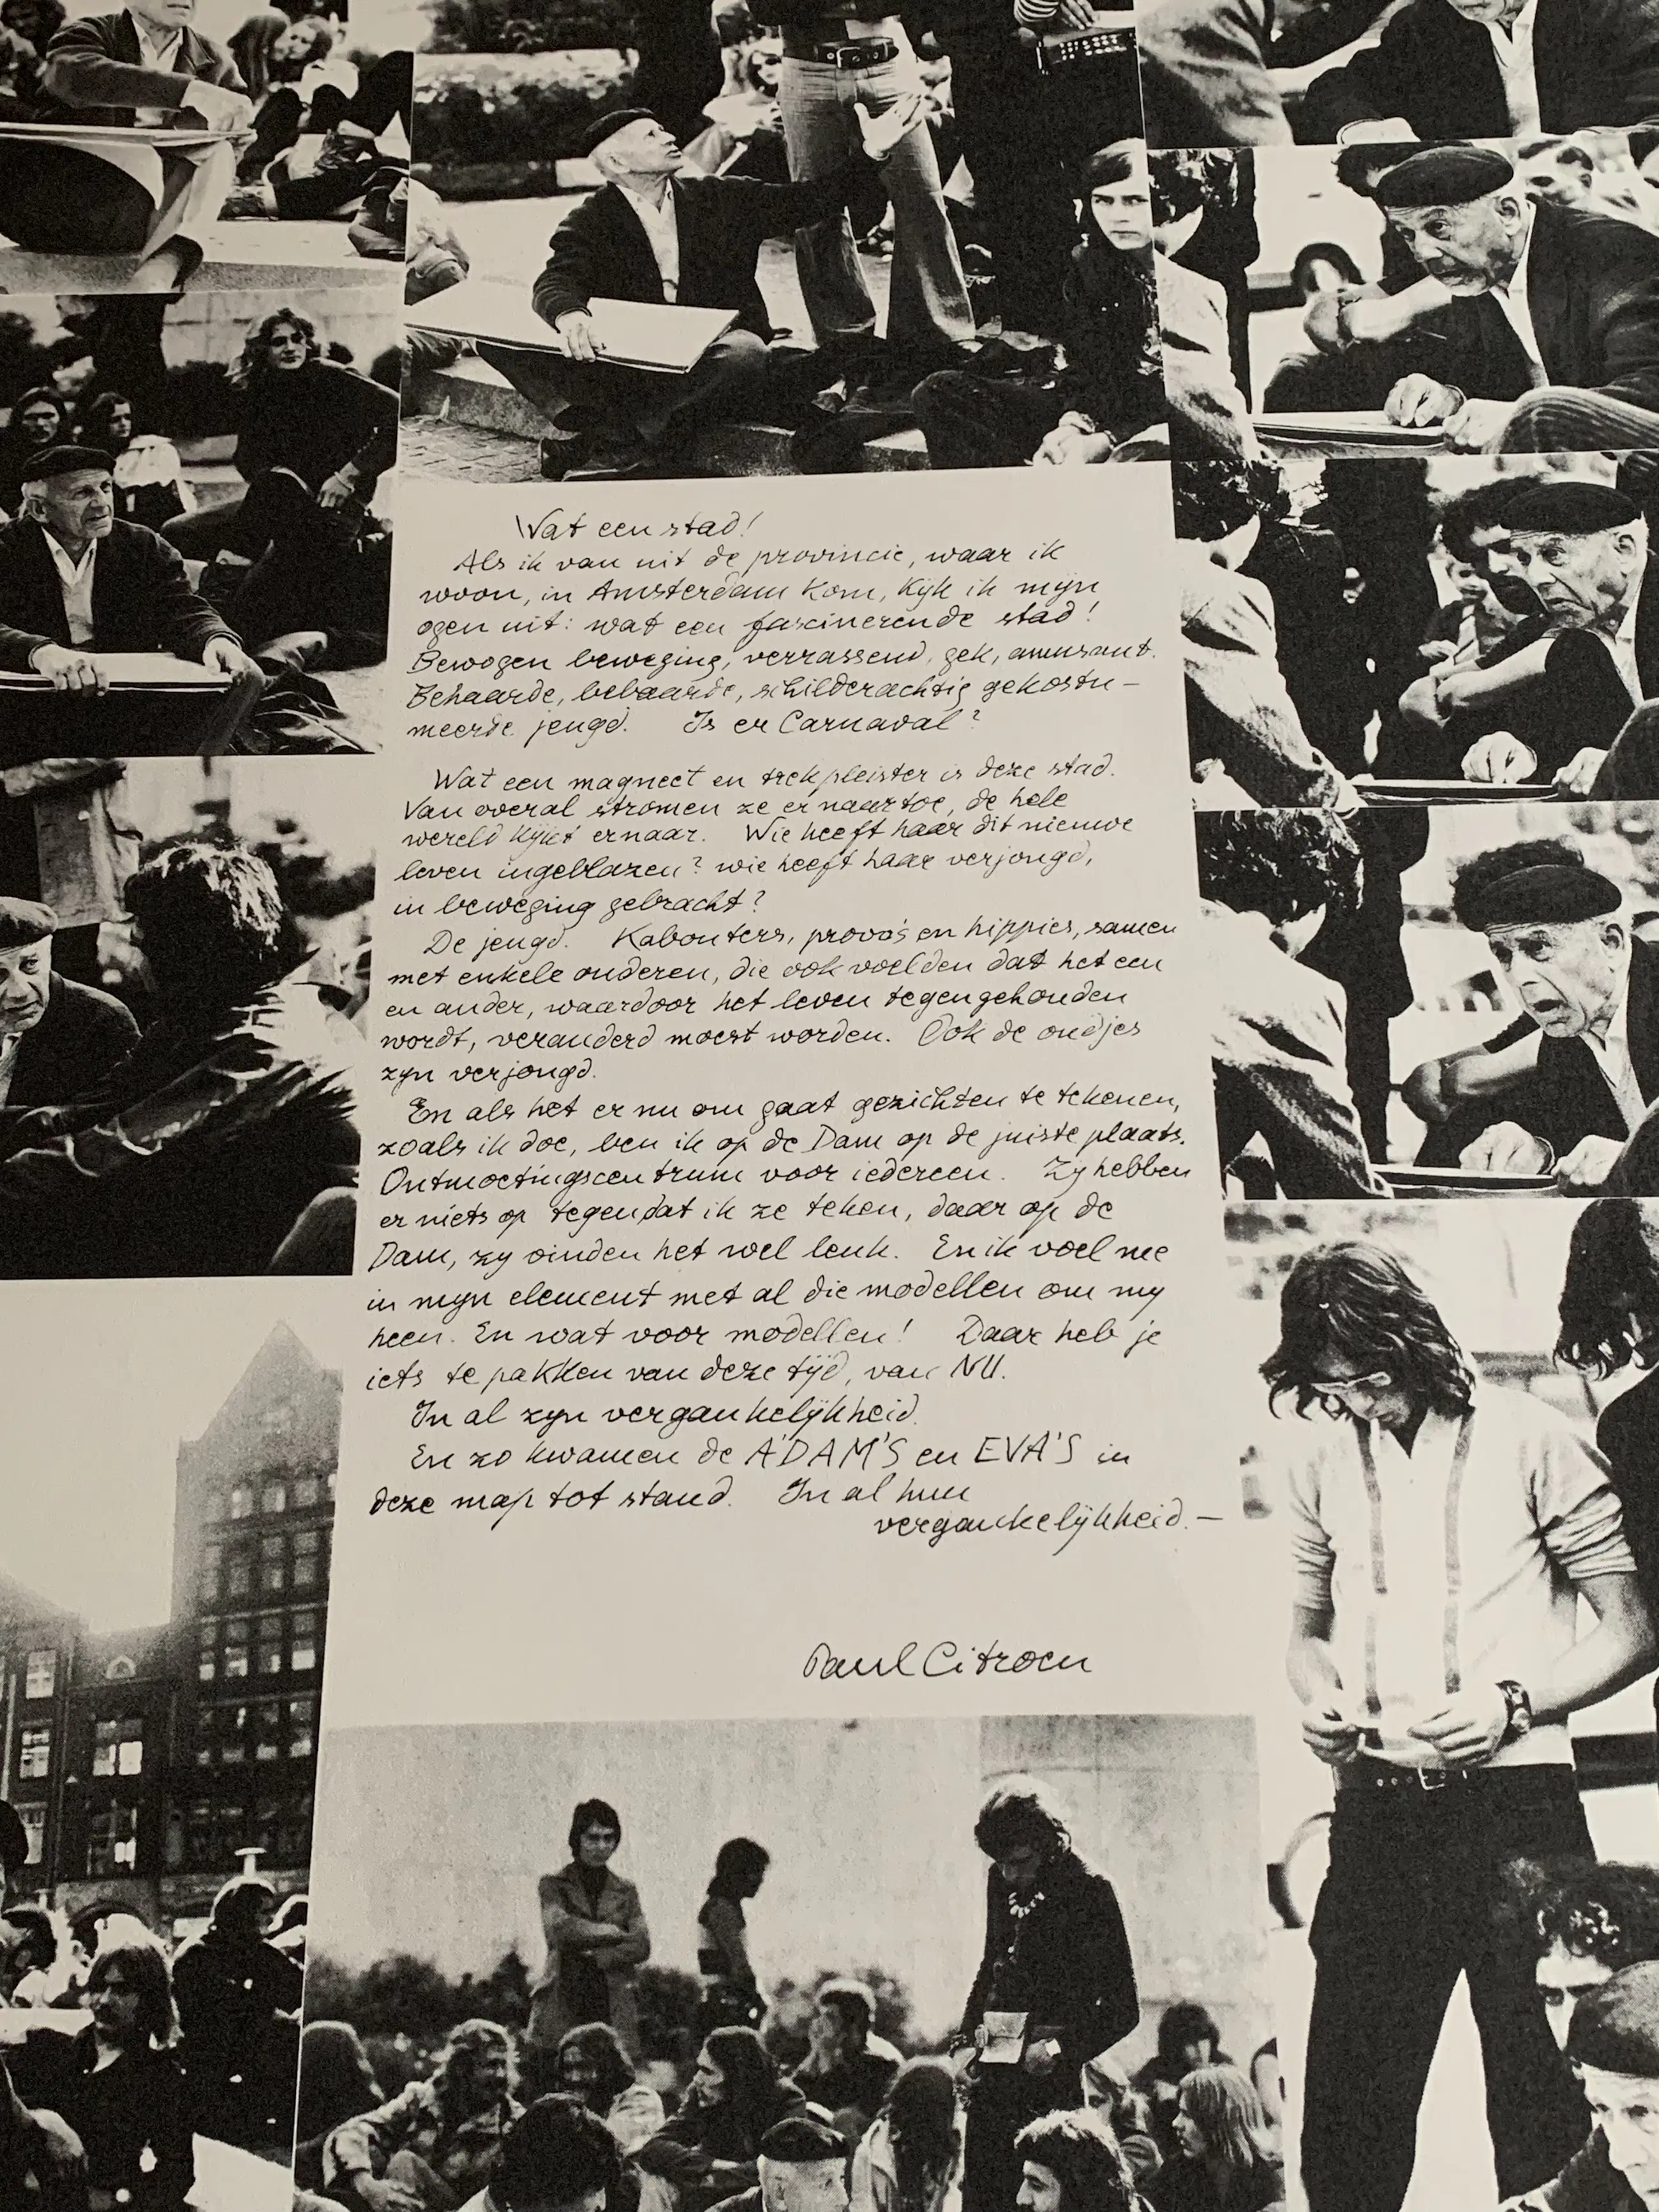 Wat een stad!
Als ik van uit de provincie, waar ik
woon, in Amsterdam kom, kijk ik mijn
ogen uit: wat een fascinerende stad!
Bewogen beweging, verrassend, gek, amusant.
Behaarde, bebaarde, schilderachtig gekostu-
meerde jeugd. Is er Carnaval?
Wat een magneet en trekpleister is deze stad.
Van overal stromen ze er naar toe, de hele
wereld kijkt ernaar. Wie heeft haar dit nieuwe
leven ingeblazen? wie heeft haar verjongd,
in beweging gebracht?
De jeugd. Kabouters, provo's en hippies, samen
met enkele ouderen, die ook voelden dat het een
en ander, waardoor het leven tegengehouden
wordt, veranderd moest worden. Ook de oudjes
zijn verjongd.
En als het er nu om gaat gezichten te tekenen,
zoals ik doe, ben ik op de Dam op de juiste plaats.
Ontmoetingscentrum voor iedereen. Zij hebben
er niets op tegen dat ik ze teken, daar op de
Dam, zij vinden het wel leuk. En ik voel me
in mijn element met al die modellen om mij
heen. En wat voor modellen! Daar heb je
iets te pakken van deze tijd, van NU.
In al zijn vergankelijkheid.
En zo kwamen de A'DAM'S en EVA'S in
deze map tot stand. In al hun
vergankelijkheid.—
Paul Citroen